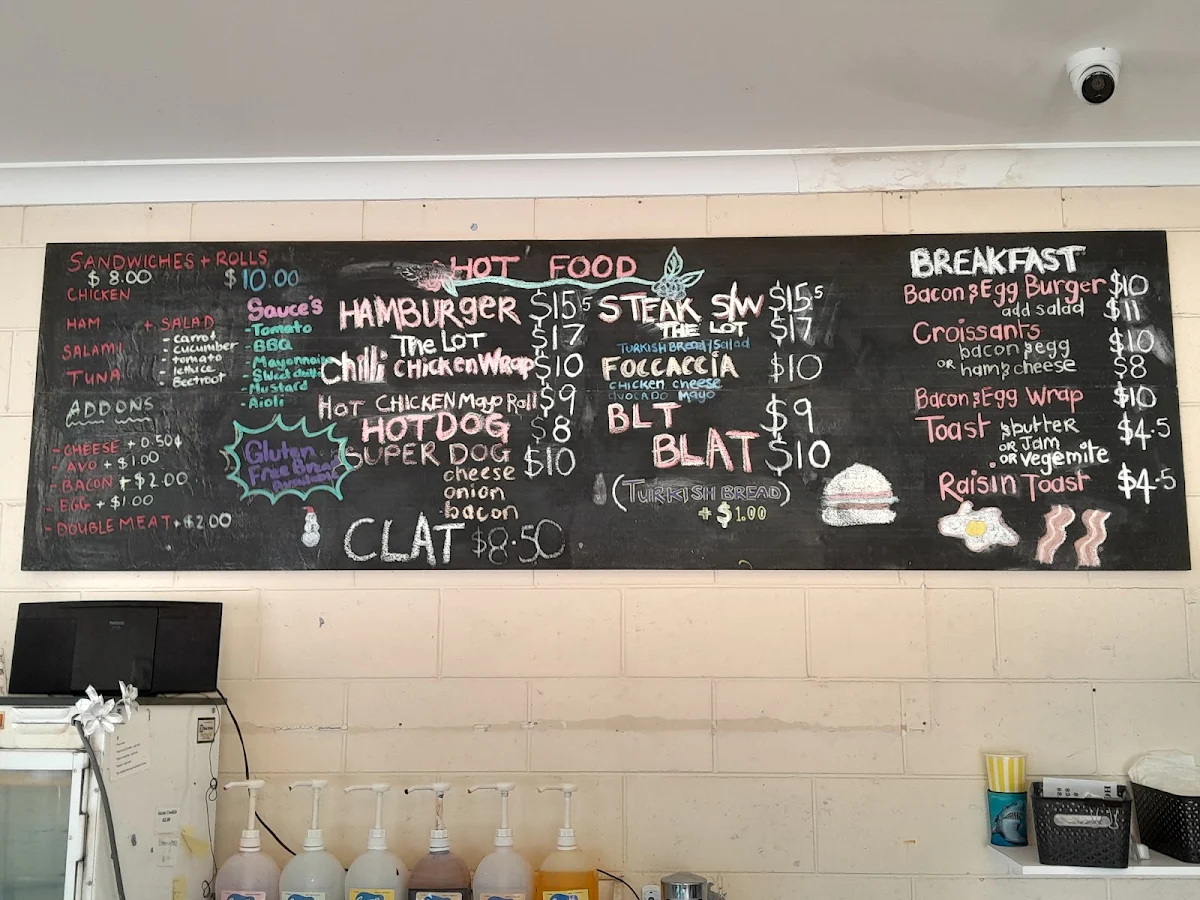 SANDWICHES + ROLLS
$8.00 $10.00
CHICKEN
HAM
SALAMI
TUNA
+ SALAD
- carrot
- cucumber
- tomato
- lettuce
- Beetroot
ADDONS
- CHEESE + 0.50¢
- AVO + $1.00
- BACON + $2.00
- EGG + $1.00
- DOUBLE MEAT + $2.00
Sauce's
- Tomato
- BBQ
- Mayonnaise
- Sweet chilli
- Mustard
- Aioli
Gluten
Free Bread
Available
HOT FOOD
HAMBURGER $15.5
The LOT $17
Chilli CHICKEN Wrap $10
HOT CHICKEN Mayo Roll $9
HOTDOG $8
SUPER DOG $10
cheese
onion
bacon
CLAT $8.50
STEAK S/W $15.5
THE LOT $17
TURKISH BREAD/Salad
FOCCACCIA $10
CHICKEN CHEESE
AVOCADO MAYO
BLT $9
BLAT $10
(TURKISH BREAD)
+ $1.00
BREAKFAST
Bacon & Egg Burger $10
add salad $11
Croissants $10
bacon & egg
OR ham & cheese $8
Bacon & Egg Wrap $10
Toast & butter $4.5
OR Jam
OR Vegemite
Raisin Toast $4.5